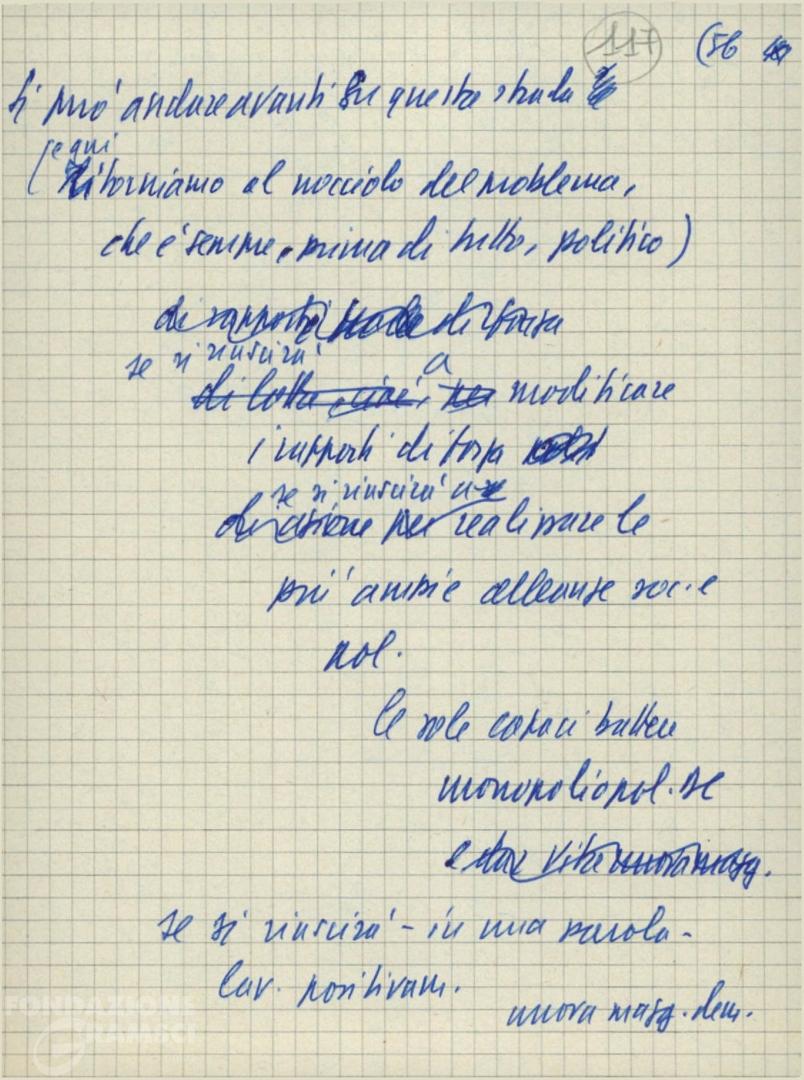 117 (56
Si può andare avanti su questa strada
(e qui
Ritorniamo al nocciolo del problema,
che è sempre, prima di tutto, politico)
di rapporti di forza
se si riuscirà a
di lotta, cioè, per modificare
i rapporti di forza
se si riuscirà a
di azione per realizzare le
più ampie alleanze soc. e
pol.
le sole capaci battere
monopolio pol. DC
e dar vita nuova magg.
se si riuscirà - in una parola -
lav. positivam.
nuova magg. dem.
FONDAZIONE
GRAMSCI